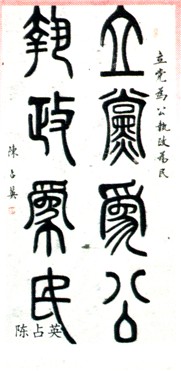 立党为公执政为民
立黨為公
執政為民
陳占英
陈占英